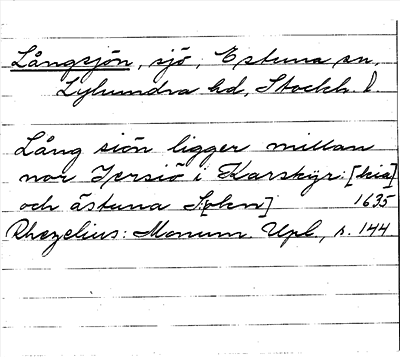 Långsjön, sjö, Estuna sn,
Lyhundra hd, Stockh. l.
Lång siön ligger millan
nor Jersiö i Karskyr: [kia]
och ästuna S[okn] 1635
Rhezelius: Monum. Upl., s. 144